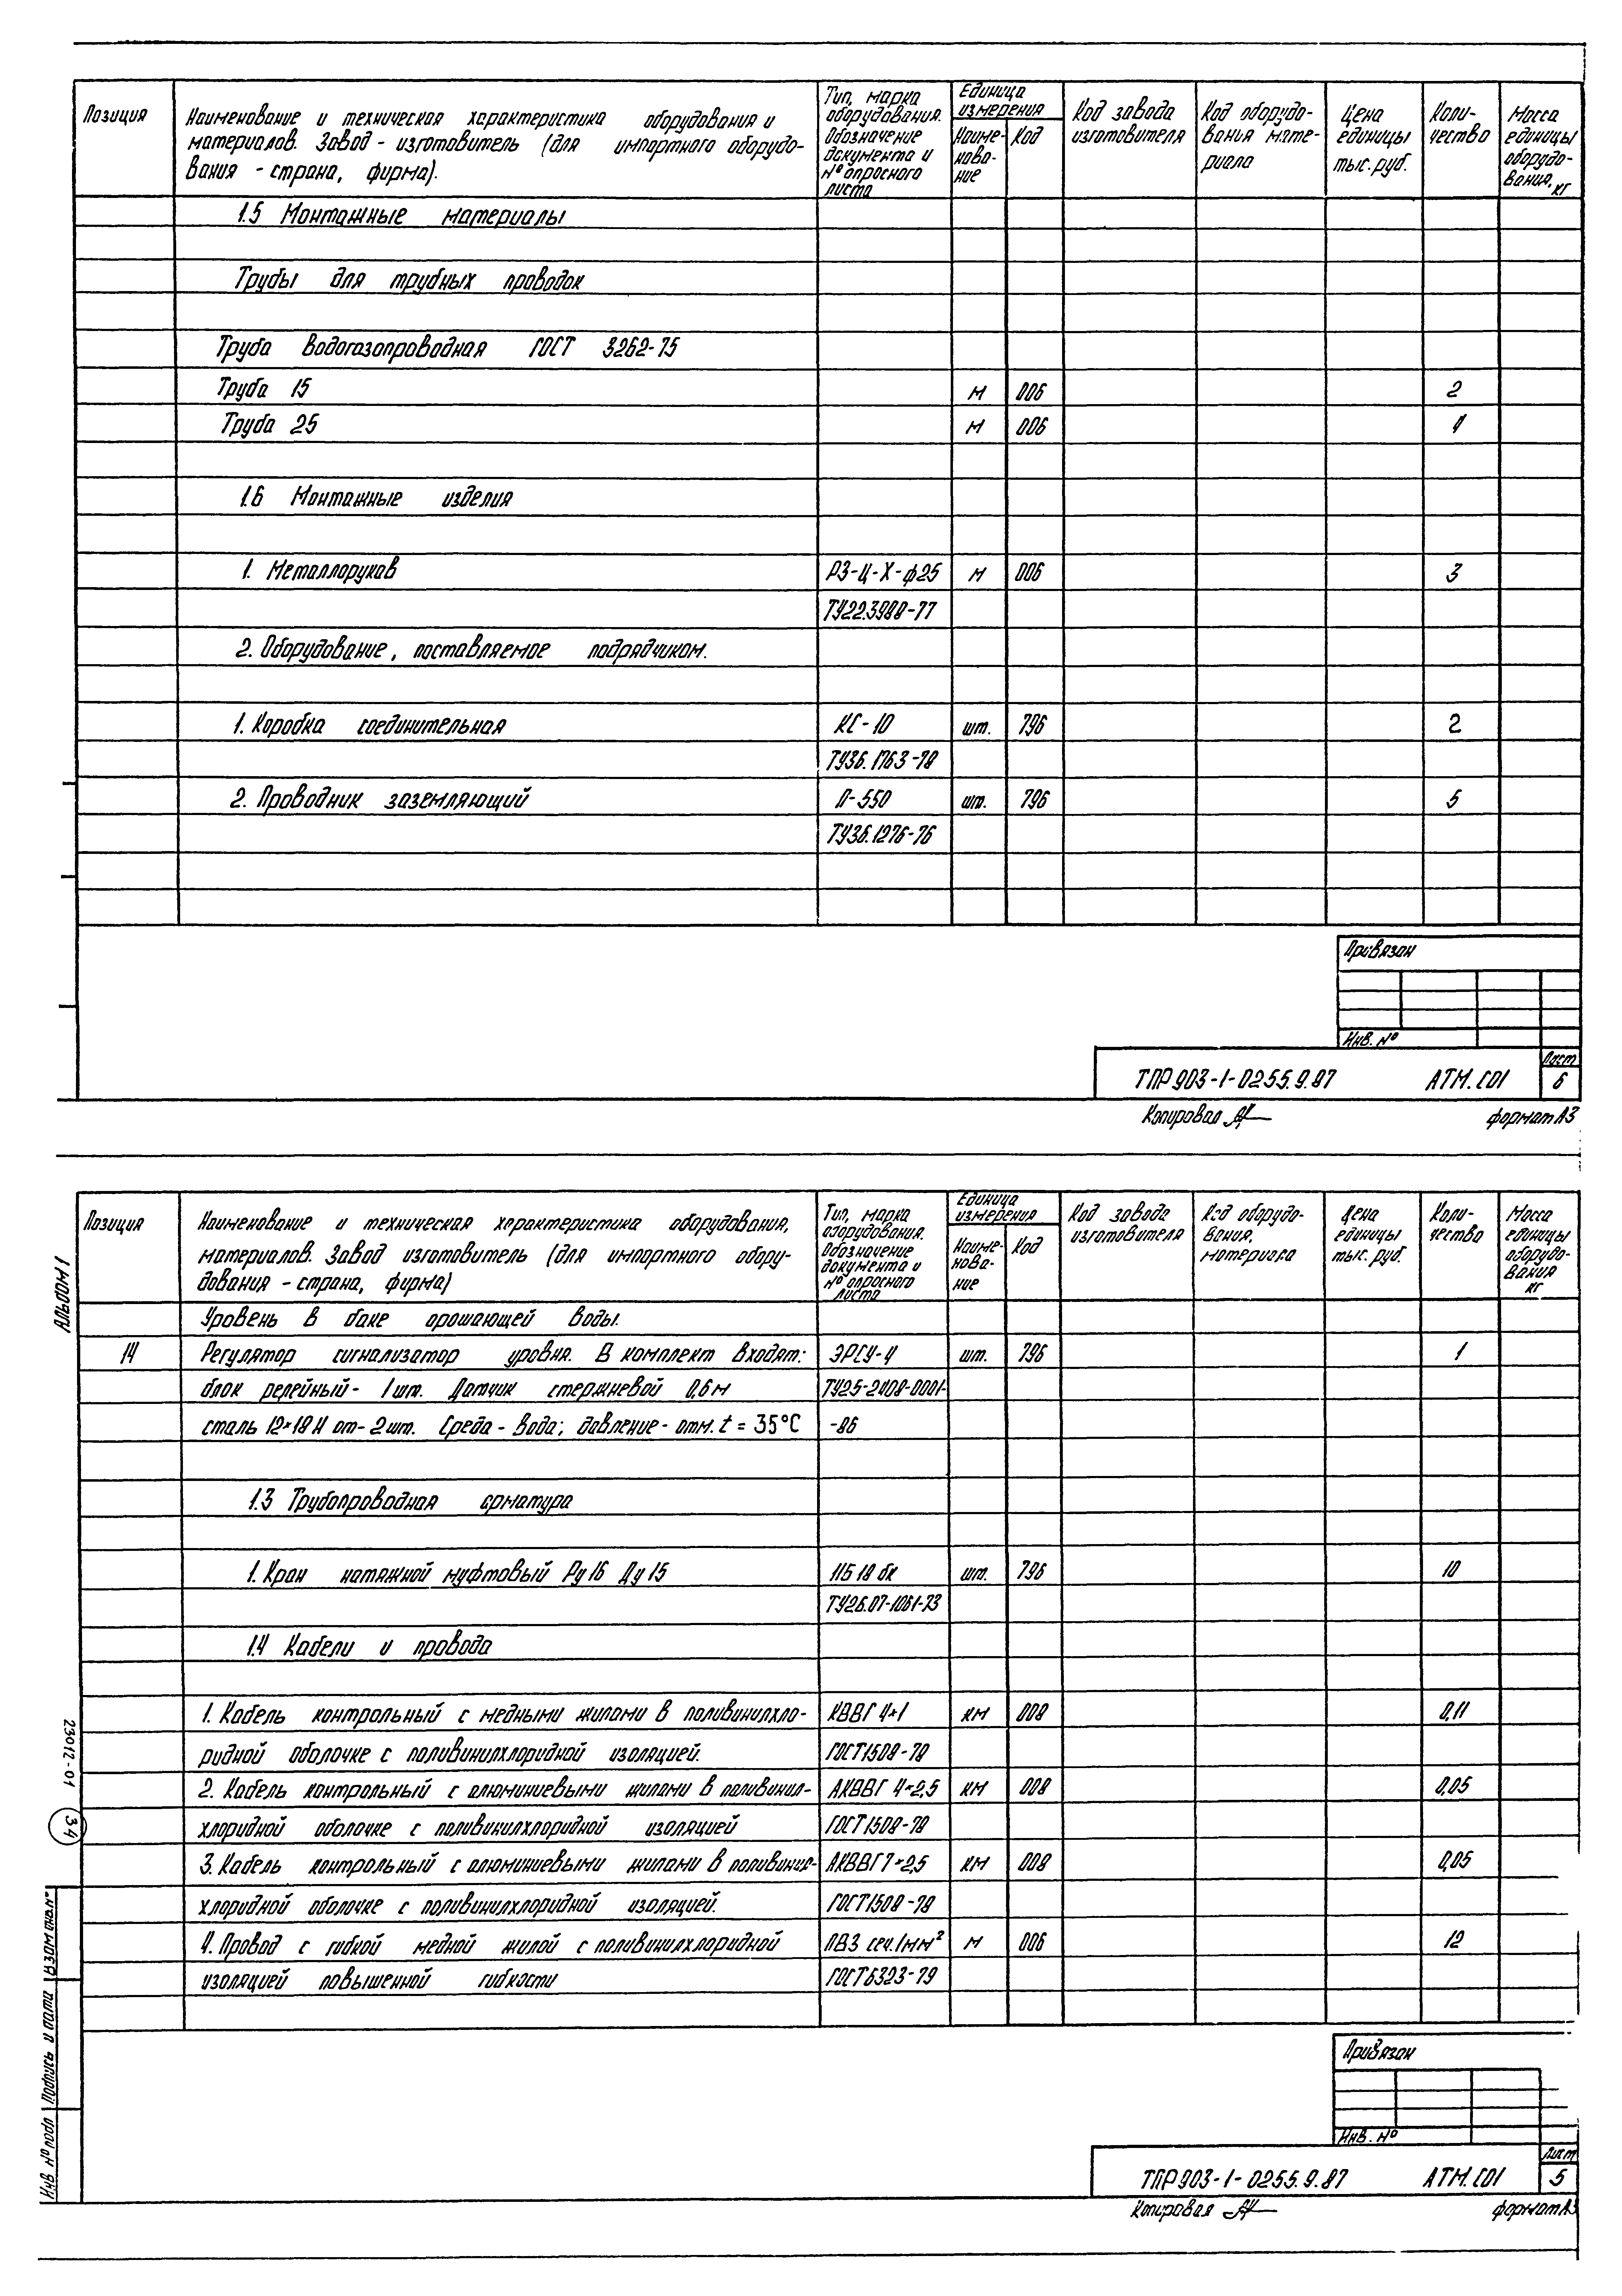 Позиция
Наименование и техническая характеристика оборудования и
материалов. Завод - изготовитель (для импортного оборудо-
вания - страна, фирма).
Тип, марка
оборудования.
Обозначение
документа и
№ опросного
листа
Единица
измерения
Наиме-
нова-
ние
Код
Код завода
изготовителя
Код оборудо-
вания мате-
риала
Цена
единицы
тыс. руб.
Коли-
чество
Масса
единицы
оборудо-
вания,
кг
1.5 Монтажные материалы
Трубы для трубных проводок
Труба водогазопроводная ГОСТ 3262-75
Труба 15 м 006 2
Труба 25 м 006
1.6 Монтажные изделия
1. Металлорукав РЗ-Ц-Х-ф25 м 006 3
ТУ22.3988-77
2. Оборудование, поставляемое подрядчиком.
1. Коробка соединительная КС-10 шт. 796 2
ТУ36.1763-78
2. Проводник заземляющий П-550 шт. 796 5
ТУ36.1276-76
Привязан
Инв. №
ТПР 903-1-0255.9.87 АТМ.СО1
Лист
6
Копировал
формат А3
Альбом 1
Позиция
Наименование и техническая характеристика оборудования,
материалов. Завод изготовитель (для импортного обору-
дования - страна, фирма)
Тип, марка
оборудования.
Обозначение
документа и
№ опросного
листа
Единица
измерения
Наиме-
нова-
ние
Код
Код завода
изготовителя
Код оборудо-
вания,
материала
Цена
единицы
тыс. руб.
Коли-
чество
Масса
единицы
оборудо-
вания
кг
Уровень в баке орошающей воды.
14 Регулятор сигнализатор уровня. В комплект входят: ЭРСУ-4 шт. 796 1
блок релейный - 1 шт. Датчик стержневой 0,6м ТУ25-2408-0001-
сталь 12×18Н от - 2 шт. Среда - вода; давление - атм. t = 35°С -86
1.3 Трубопроводная арматура
1. Кран натяжной муфтовый Ру16 Ду15 11Б 18 бк шт. 796 10
ТУ26.07-1061-73
1.4 Кабели и провода
1. Кабель контрольный с медными жилами в поливинилхло- КВВГ 4×1 км 008 0,11
ридной оболочке с поливинилхлоридной изоляцией. ГОСТ1508-78
2. Кабель контрольный с алюминиевыми жилами в поливинил- АКВВГ 4×2,5 км 008 0,05
хлоридной оболочке с поливинилхлоридной изоляцией ГОСТ1508-78
3. Кабель контрольный с алюминиевыми жилами в поливинил- АКВВГ 7×2,5 км 008 0,05
хлоридной оболочке с поливинилхлоридной изоляцией. ГОСТ1508-78
4. Провод с гибкой медной жилой с поливинилхлоридной ПВ3 сеч. 1мм² м 006 12
изоляцией повышенной гибкости ГОСТ6323-79
23012-01
34
Взам инв. №
Подпись и дата
Инв № подл
Привязан
Инв. №
ТПР 903-1-0255.9.87 АТМ.СО1
Лист
5
Копировал
формат А3